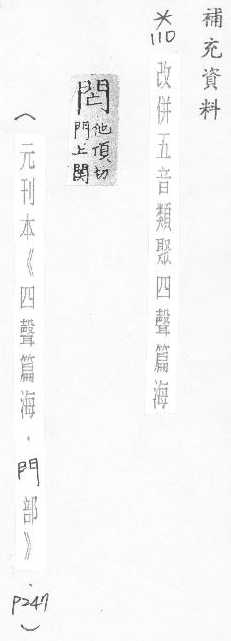 補充資料
※110 改併五音類聚四聲篇海
他頂切
門上関
（元刊本《四聲篇海．門部》．P247）